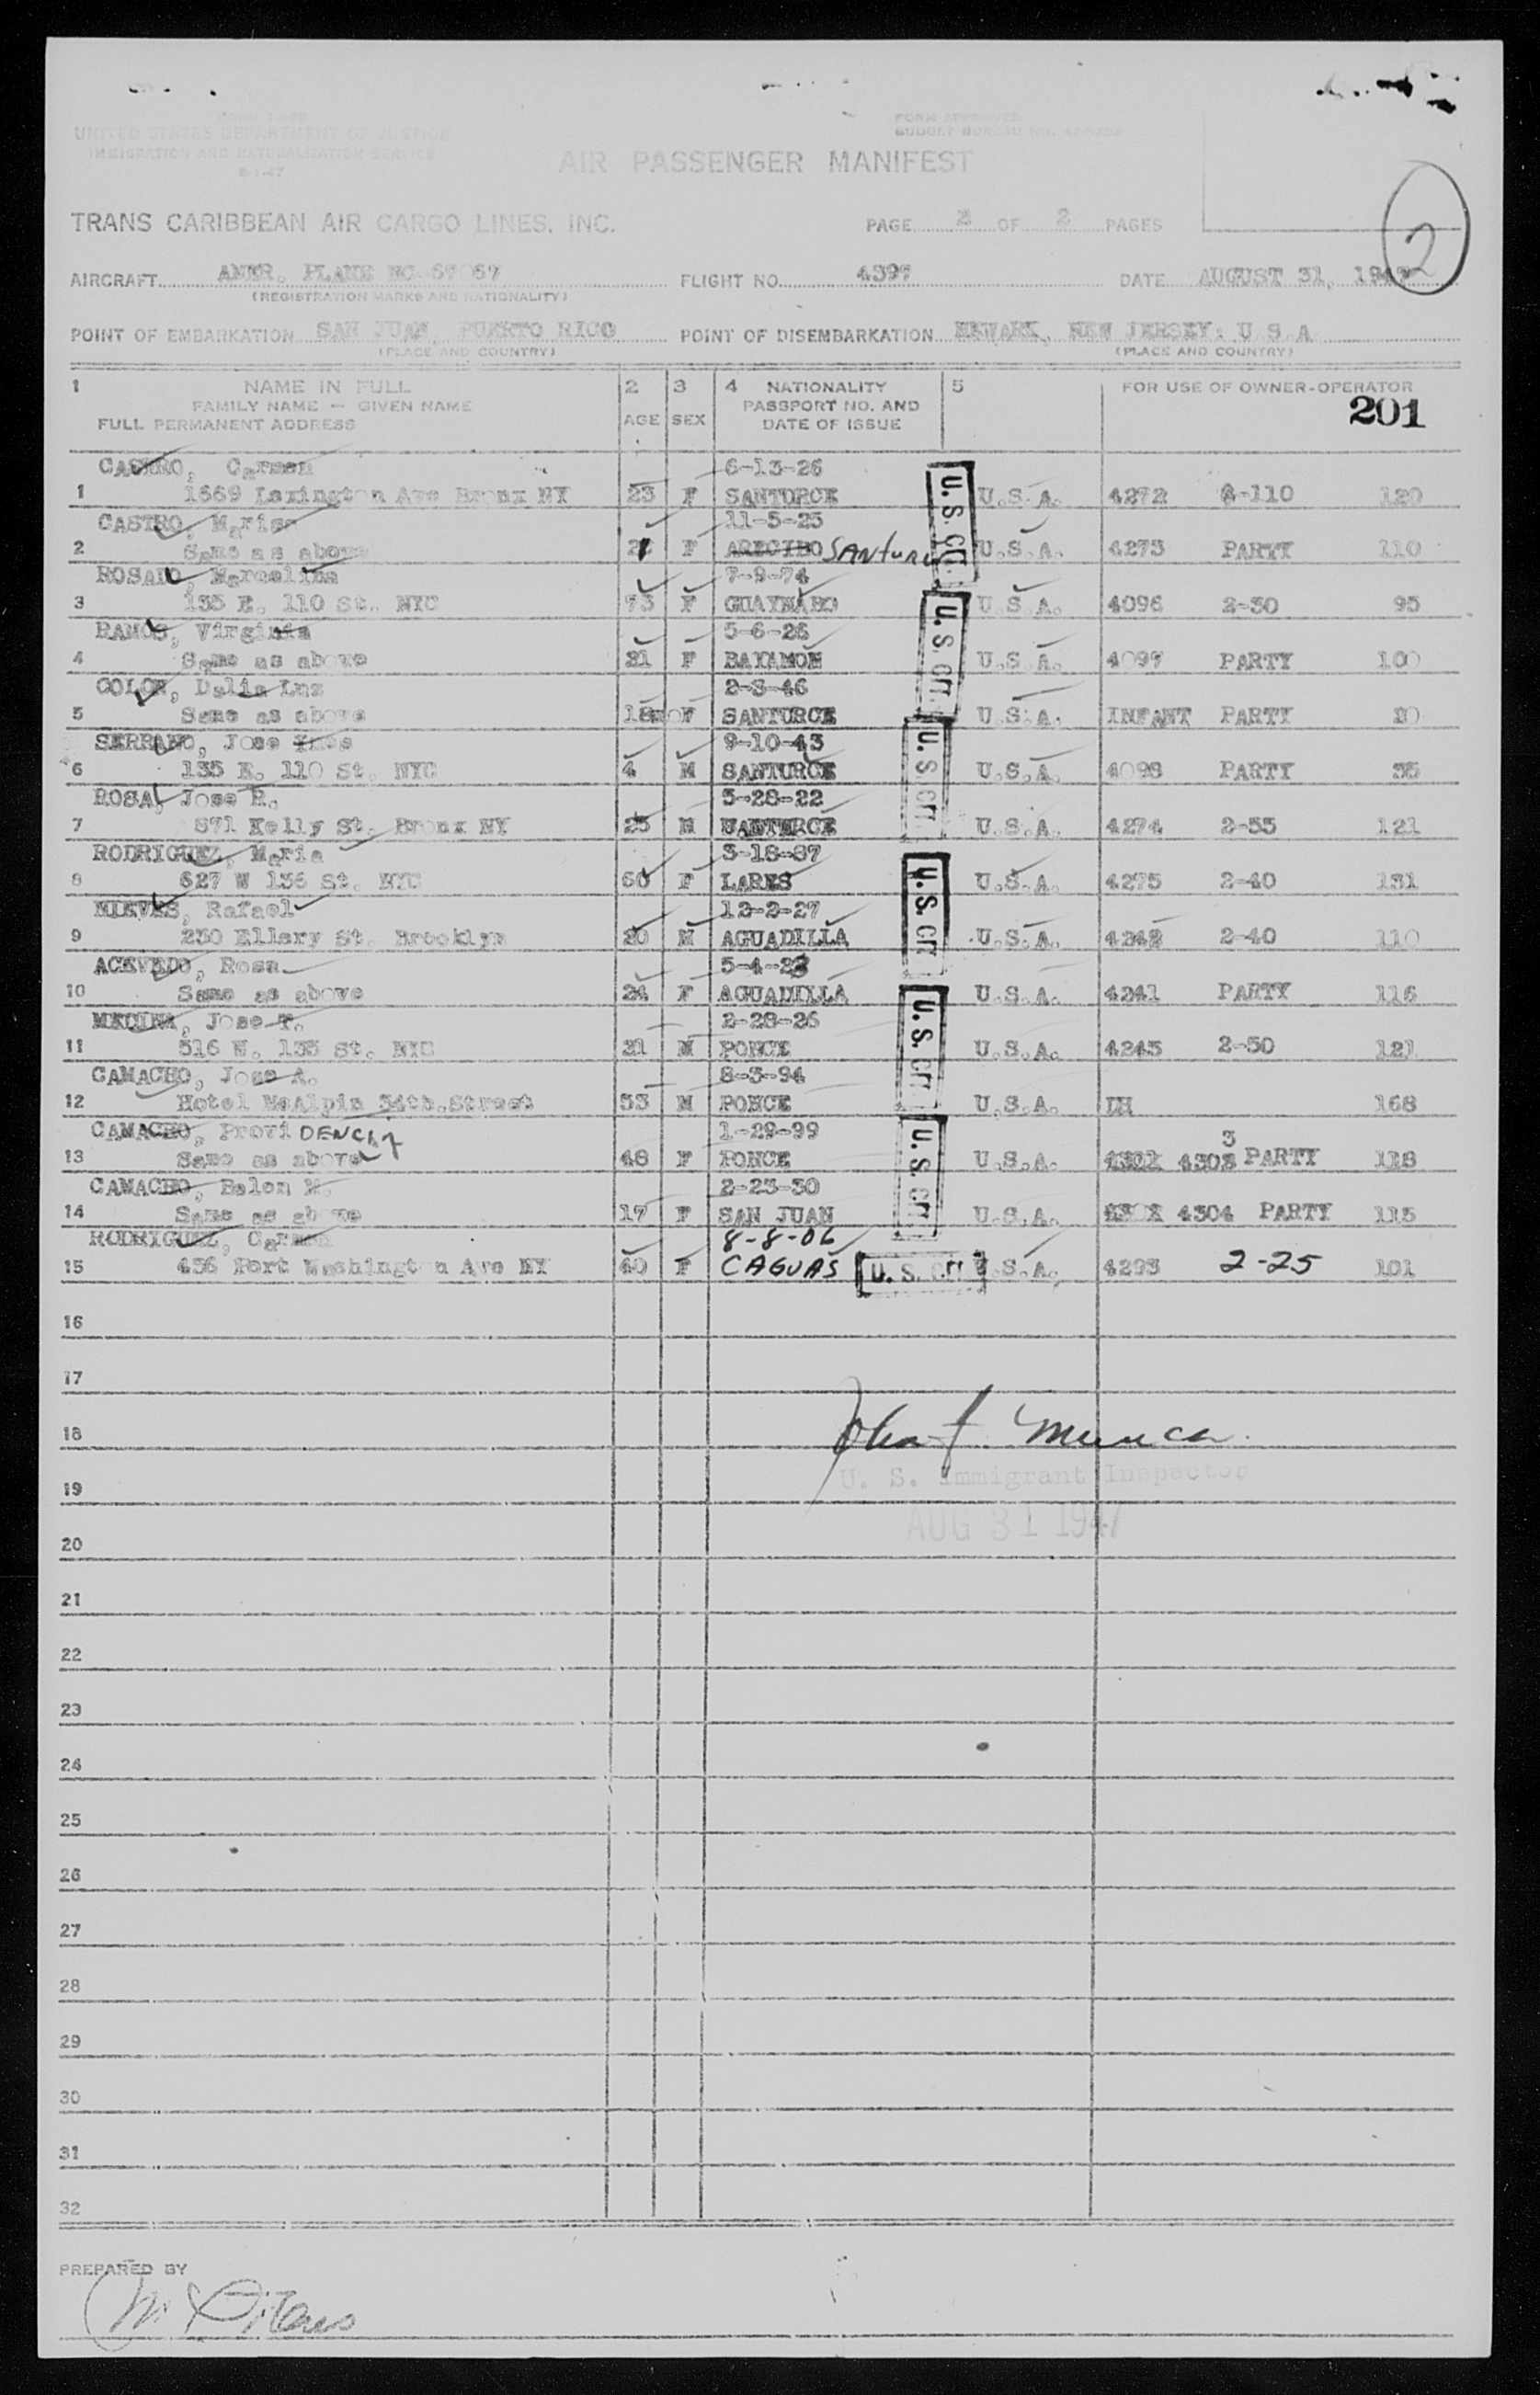 UNITED STATES DEPARTMENT OF JUSTICE
IMMIGRATION AND NATURALIZATION SERVICE
FORM APPROVED
BUDGET BUREAU NO.
AIR PASSENGER MANIFEST
TRANS CARIBBEAN AIR CARGO LINES, INC.
PAGE 2 OF 2 PAGES
2
AIRCRAFT AMER. PLANE NO FLIGHT NO. 4397 DATE AUGUST 31, 1947
(REGISTRATION MARKS AND NATIONALITY)
POINT OF EMBARKATION SAN JUAN, PUERTO RICO POINT OF DISEMBARKATION NEWARK, NEW JERSEY. U S A
(PLACE AND COUNTRY) (PLACE AND COUNTRY)
1 NAME IN FULL 2 3 4 NATIONALITY 5 FOR USE OF OWNER-OPERATOR
FAMILY NAME - GIVEN NAME AGE SEX PASSPORT NO. AND 201
FULL PERMANENT ADDRESS DATE OF ISSUE
CASTRO, Carmen 6-13-26
1 1669 Lexington Ave Bronx NY 23 F SANTURCE U.S.A. 4272 2-110 120
CASTRO, Marisa 11-5-25
2 Same as above F ARECIBO SANturce U.S.A. 4273 PARTY 110
ROSADO, Marcelina 7-9-74
3 135 E. 110 St. NYC 73 F GUAYNABO U.S.A. 4096 2-30 95
RAMOS, Virginia 5-6-26
4 Same as above 21 F BAYAMON U.S.A. 4097 PARTY 100
COLON, Dalia Luz 2-3-46
5 Same as above 18mo F SANTURCE U.S.A. INFANT PARTY 20
SERRANO, Jose 9-10-43
6 135 E. 110 St. NYC 4 M SANTURCE U.S.A. 4098 PARTY 35
ROSA, Jose R. 5-28-22
7 871 Kelly St. Bronx NY 25 M SANTURCE U.S.A. 4274 2-55 121
RODRIGUEZ, Maria 3-18-87
8 627 W 136 St. NYC 60 F LARES U.S.A. 4275 2-40 131
NIEVES, Rafael 12-2-27
9 230 Ellery St. Brooklyn 20 M AGUADILLA U.S.A. 4242 2-40 110
ACEVEDO, Rosa 5-4-23
10 Same as above 24 F AGUADILLA U.S.A. 4241 PARTY 116
MEDINA, Jose T. 2-28-26
11 516 W. 135 St. NYC 21 M PONCE U.S.A. 4245 2-50 121
CAMACHO, Jose A. 8-3-94
12 Hotel McAlpin 34th.Street 53 M PONCE U.S.A. IH 168
CAMACHO, ProviDENCIA 1-29-99 3
13 Same as above 48 F PONCE U.S.A. 4302 PARTY 118
CAMACHO, Belen M. 2-23-30
14 Same as above 17 F SAN JUAN U.S.A. 4304 PARTY 115
RODRIGUEZ, Carmen 8-8-06
15 436 Fort Washington Ave NY 40 F CAGUAS U.S.A. 4293 2-25 101
U. S. CIT
U. S. CIT
U. S. CIT
U. S. CIT
U. S. CIT
U. S. CIT
U. S. CIT
16
17
18
U. S. Immigrant Inspector
19
AUG 31 1947
20
21
22
23
24
25
26
27
28
29
30
31
32
PREPARED BY